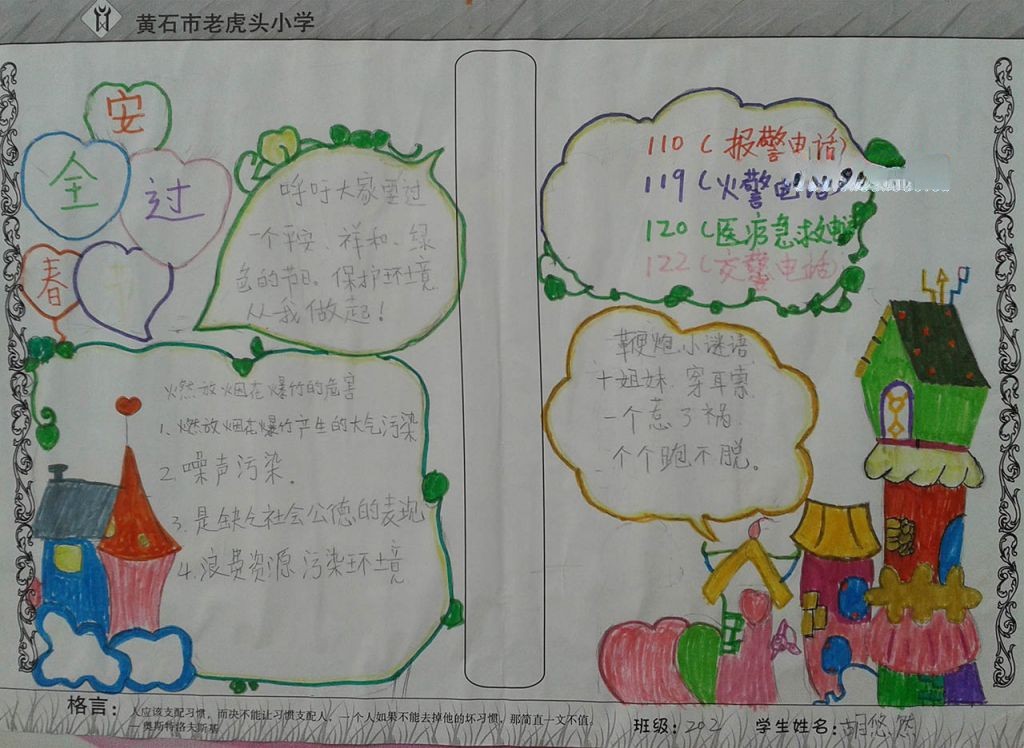 黄石市老虎头小学
安
全
过
春
节
呼吁大家重过
一个平安、祥和、绿
色的节日。保护环境
从我做起!
燃放烟花爆竹的危害
1、燃放烟花爆竹产生的大气污染
2.噪声污染.
3.是缺乏社会公德的表现
4.浪费资源 污染环境
110(报警电话)
119(火警电话
120(医疗急救
122(交警电话)
鞭炮小谜语
十姐妹.穿耳索.
一个惹了祸.
个个跑不脱。
格言:
人应该支配习惯,而决不能让习惯支配人,一个人如果不能去掉他的坏习惯,那简直一文不值。
—奥斯特洛夫斯基
班级:202 学生姓名:胡悠然